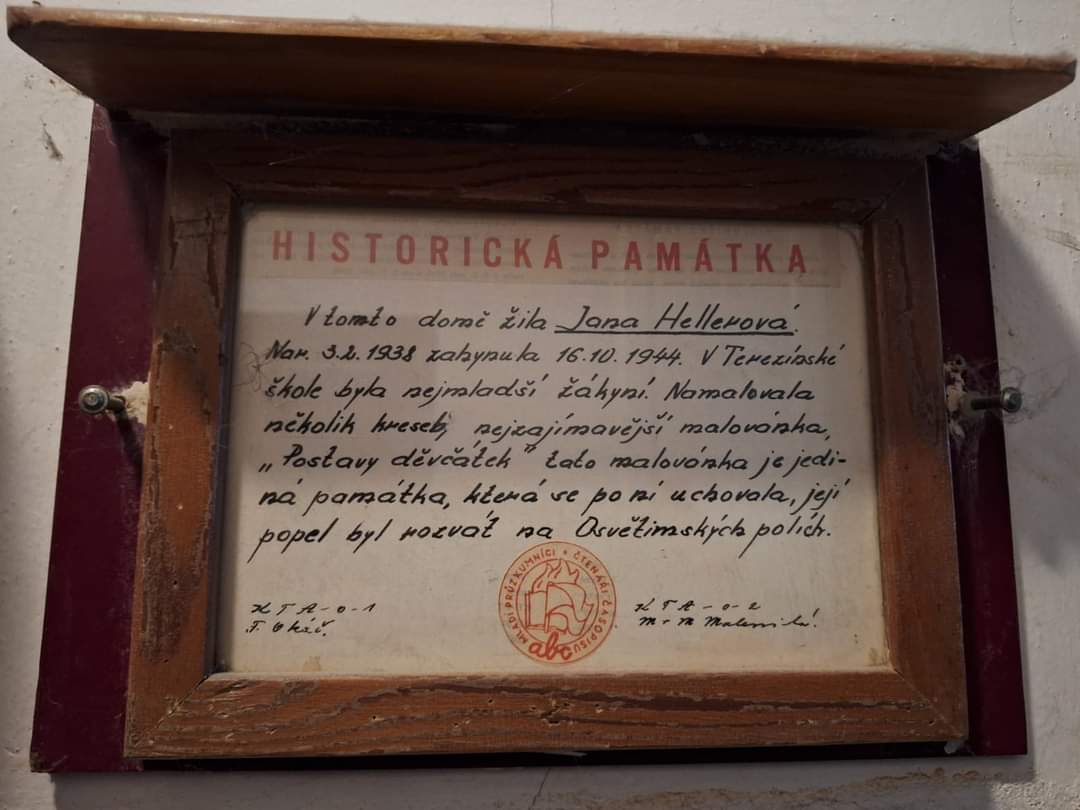 HISTORICKÁ PAMÁTKA
V tomto domě žila Jana Hellerová.
Nar. 3.2. 1938 zahynula 16.10. 1944. V Terezínské
škole byla nejmladší žákyní. Namalovala
několik kreseb, nejzajímavější malovánka,
„Postavy děvčátek" tato malovánka je jedi-
ná památka, která se po ní uchovala, její
popel byl rozvát na Osvětimských polích.
MLADÍ PRŮZKUMNÍCI • ČTENÁŘI ČASOPISU
abc
K T A - 0 - 1
K T A - 0 - 2